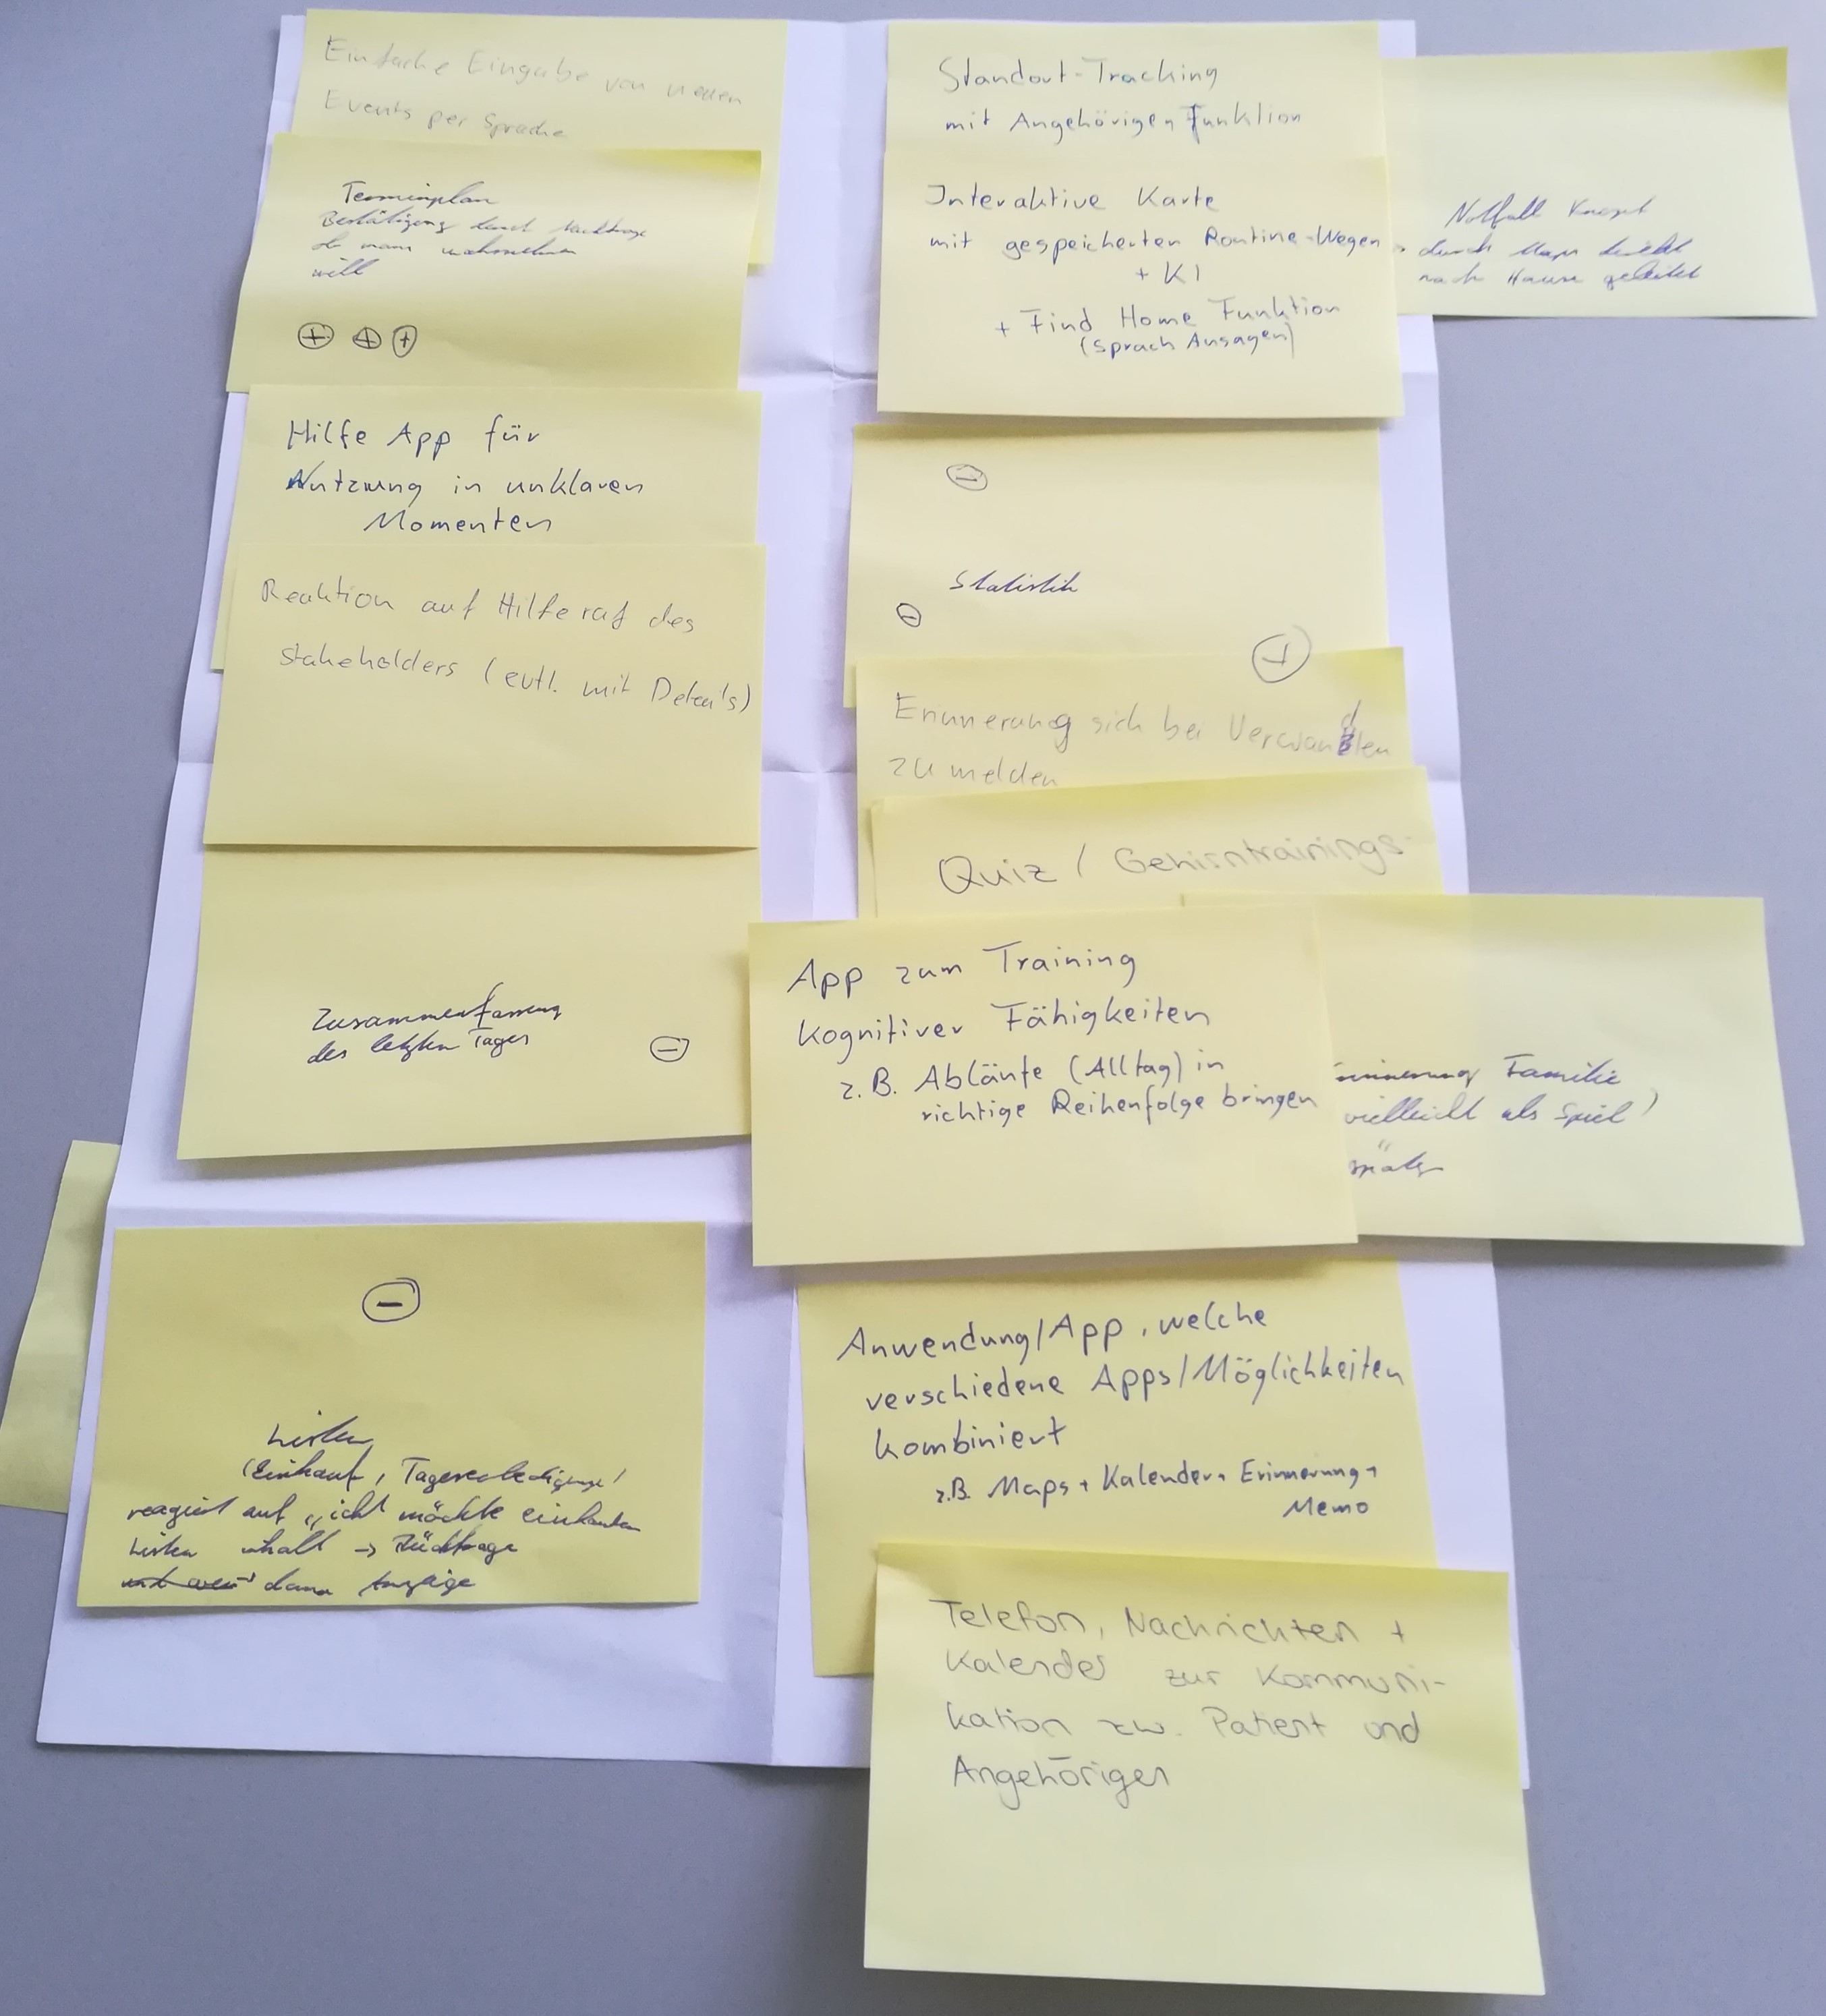 Einfache Eingabe von neuen
Events per Sprache
Terminplan
Bestätigung durch Nachfrage
ob man wahrnehmen
will
+ + +
Hilfe App für
Nutzung in unklaren
Momenten
Reaktion auf Hilferuf des
Stakeholders (evtl. mit Details)
Zusammenfassung
des letzten Tages
-
-
Listen
(Einkauf, Tageserledigung)
reagiert auf „ich möchte einkaufen
Listen inhalt -> Rückfrage
dann Anzeige
Standort-Tracking
mit Angehörigen Funktion
Interaktive Karte
mit gespeicherten Routine-Wegen
+ KI
+ Find Home Funktion
(Sprach Ansagen)
Notfall Knopf
durch Maps direkt
nach Hause geleitet
-
Statistik
-
Erinnerung sich bei Verwandten
zu melden
Quiz / Gehirntrainings-
App zum Training
Kognitiver Fähigkeiten
z.B. Abläufe (Alltag) in
richtige Reihenfolge bringen
Familie
vielleicht als Spiel)
Anwendung/App, welche
verschiedene Apps/Möglichkeiten
kombiniert
z.B. Maps + Kalender + Erinnerung +
Memo
Telefon, Nachrichten +
Kalender zur Kommuni-
kation zw. Patient und
Angehörigen